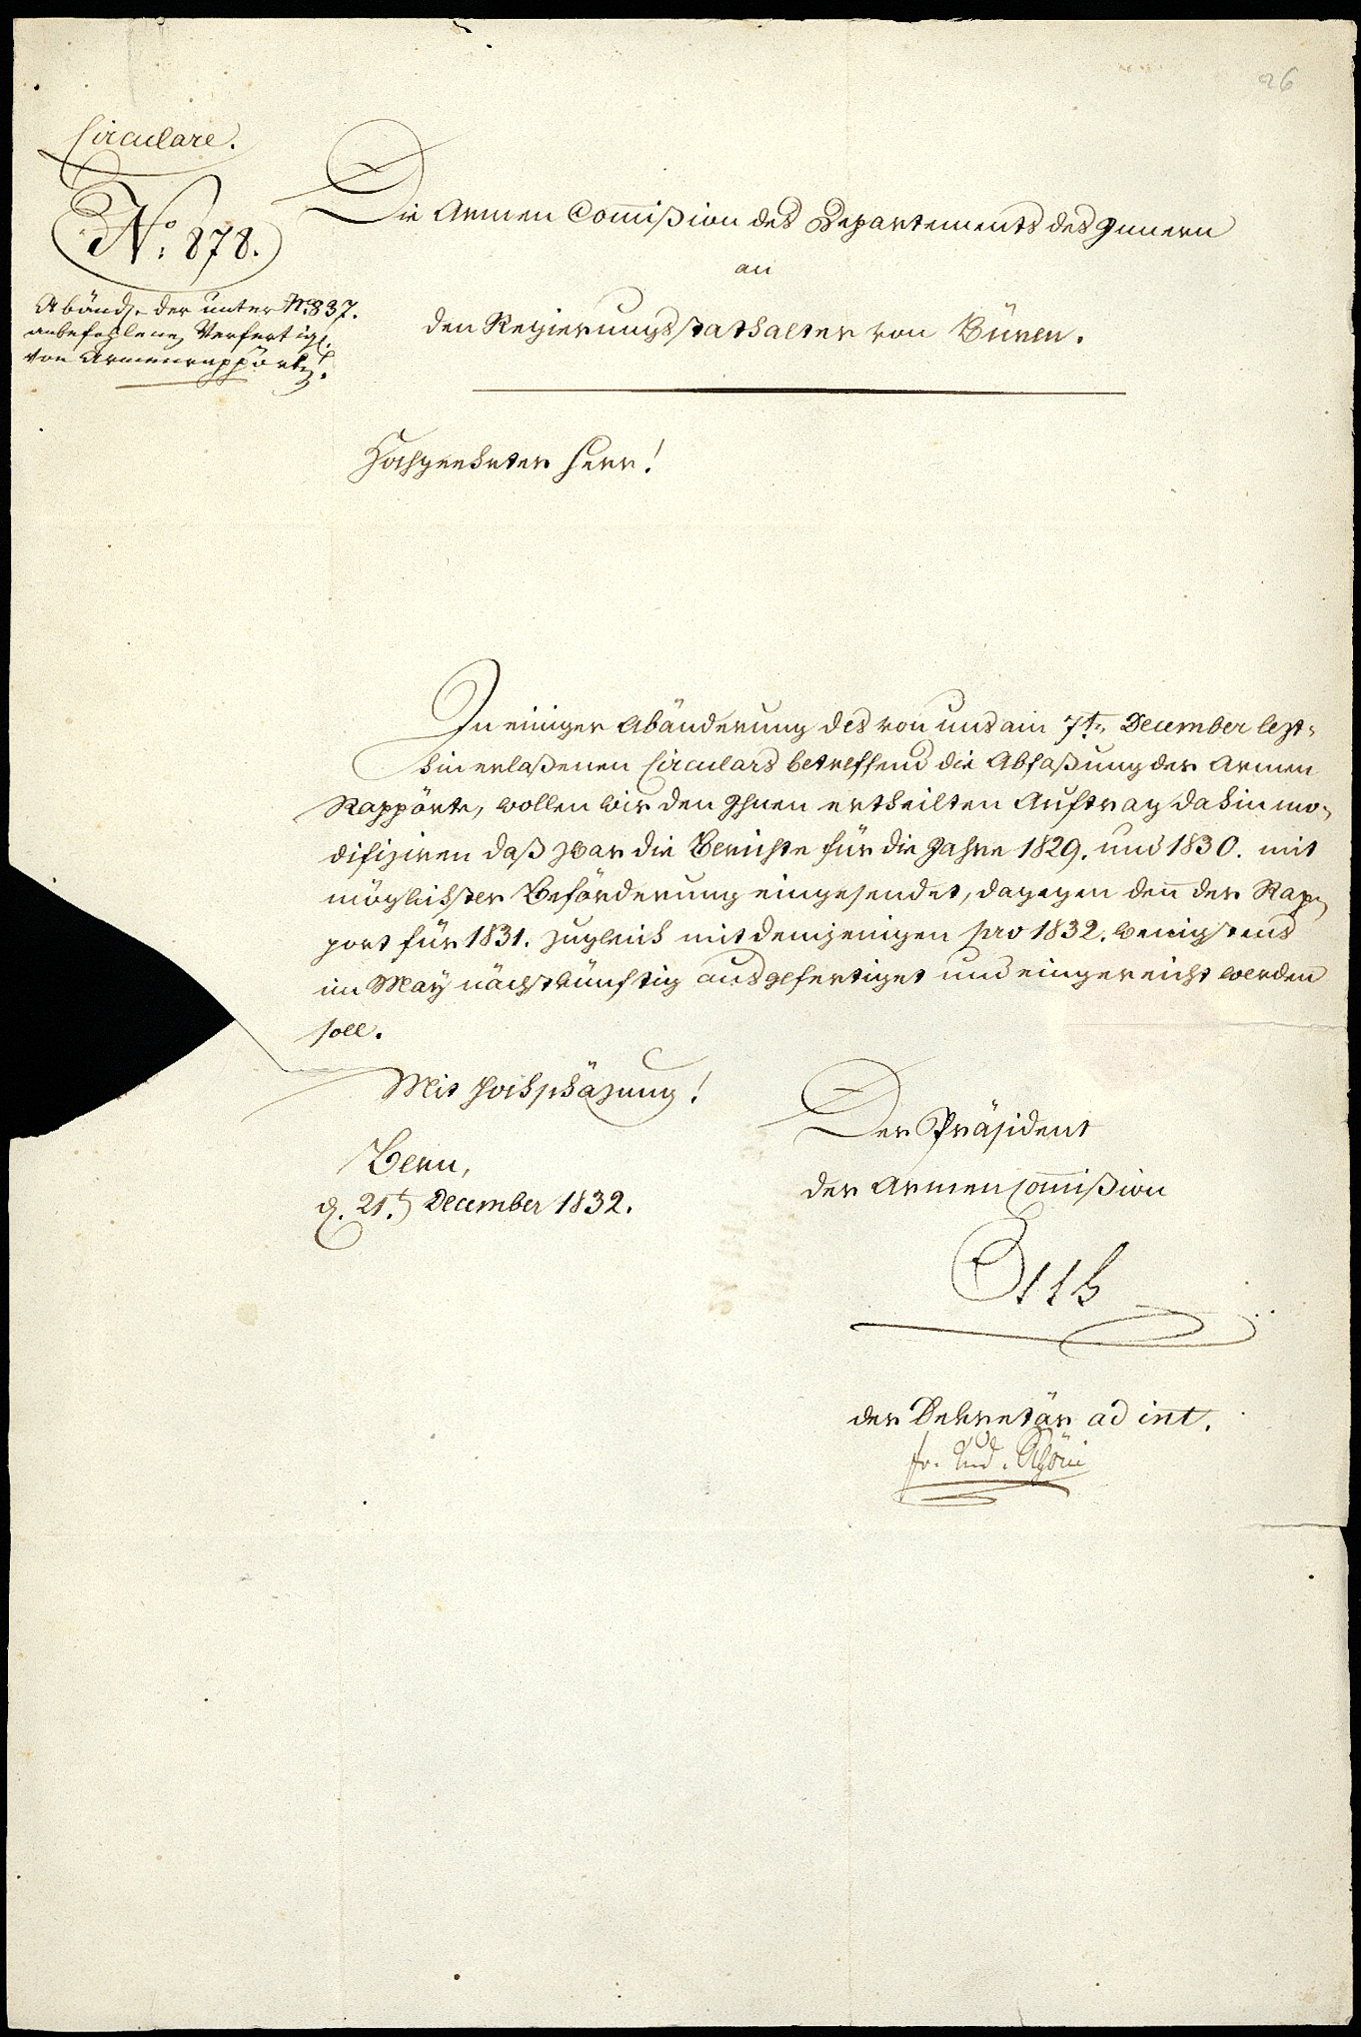 26
Circulare.
No: 878.
Abändg. der unter No 837.
anbefohlenen Verfertigg.
von Armenrapporten.
Die Armen Com̄ißion des Departements des Innern
an
den Regierungsstathalter von Büren.
Hochgeehrter Herr!
In einiger Abänderung des von uns am 7t. December lezt-
hin erlaßenen Circulars betreffend die Abfaßung der Armen
Rapporte, wollen wir den Ihnen ertheilten Auftrag dahin mo-
difiziren daß zwar die Berichte für die Jahre 1829. und 1830. mit
möglichster Beförderung eingesendet, dagegen den̄ der Rap-
port für 1831. zugleich mit demjenigen pro 1832. wenigstens
im May nächstkünftig ausgefertiget und eingereicht werden
soll.
Mit Hochschäzung!
Bern,
d. 21.t December 1832.
Der Präsident
der Armencom̄ißion
Otth
der Sekretär ad int.
fr. Rud. Schöni